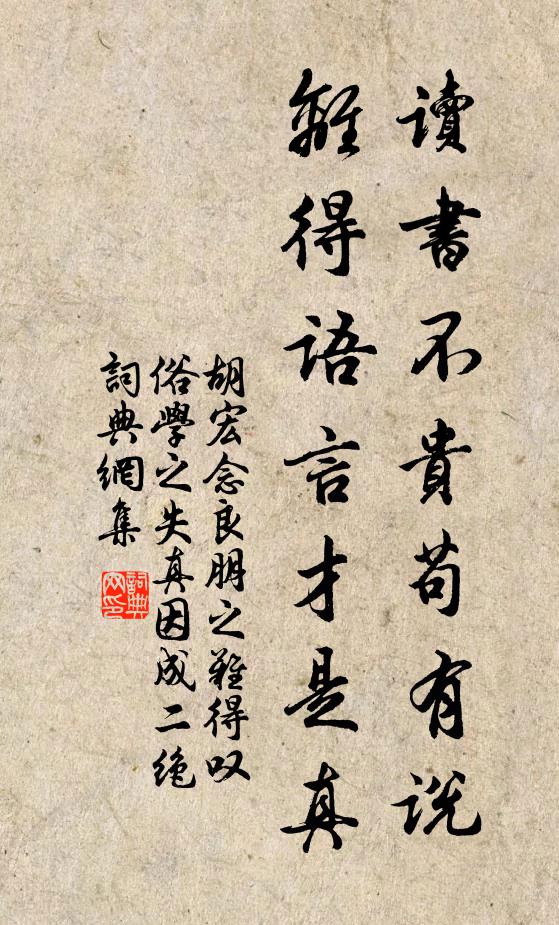 讀書不貴苟有説
離得語言才是真
胡宏念良朋之難得叹
俗學之失真因成二绝
詞典網集
詞典网印